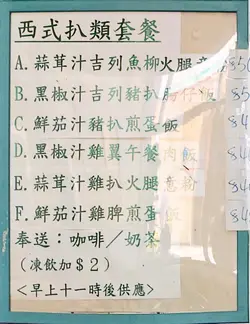 西式扒類套餐
A. 蒜茸汁吉列魚柳火腿意
B. 黑椒汁吉列豬扒腸仔飯
C. 鮮茄汁豬扒煎蛋飯
D. 黑椒汁雞翼午餐肉飯
E. 蒜茸汁雞扒火腿意粉
F. 鮮茄汁雞脾煎蛋飯
奉送：咖啡／奶茶
（凍飲加＄2）
<早上十一時後供應>